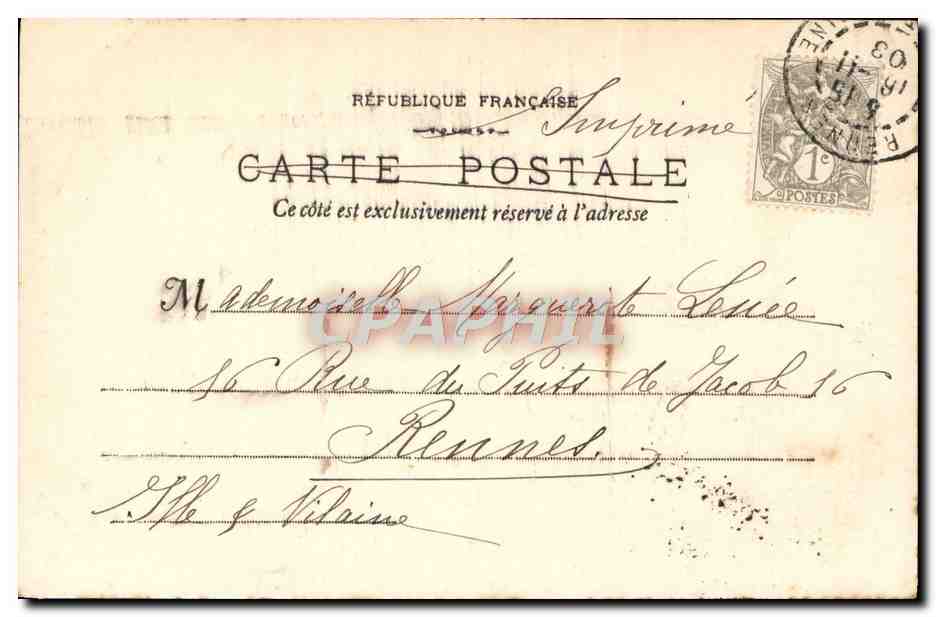 RÉPUBLIQUE FRANÇAISE
Imprimé
CARTE POSTALE
Ce côté est exclusivement réservé à l'adresse
1c
POSTES
RENNES
5 15
16 - 11
03
Mademoiselle Marguerite Lesiée
CPAPHIL
16 Rue du Puits de Jacob 16
Rennes.
Ille & Vilaine